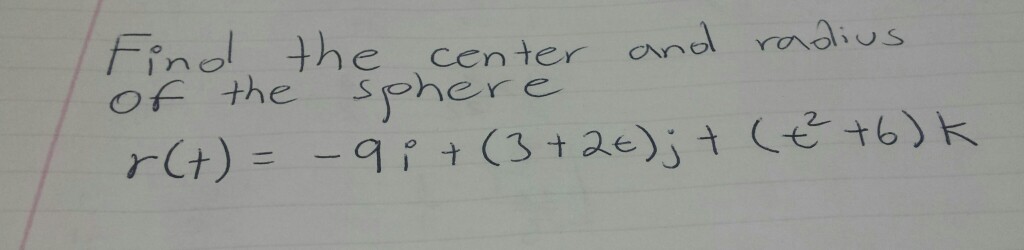 Find the center and radius
of the sphere
r(t) = -9i + (3+2t)j + (t² +6)k